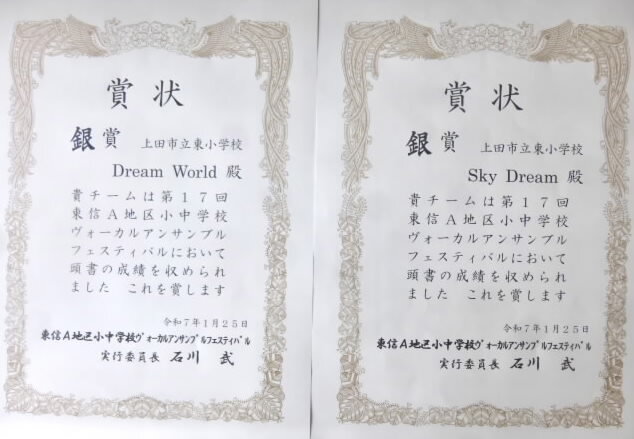 賞状
銀賞 上田市立東小学校
Dream World 殿
貴チームは第17回
東信A地区小中学校
ヴォーカルアンサンブル
フェスティバルにおいて
頭書の成績を収められ
ました これを賞します
令和7年1月25日
東信A地区小中学校ヴォーカルアンサンブルフェスティバル
実行委員長 石川 武
賞状
銀賞 上田市立東小学校
Sky Dream 殿
貴チームは第17回
東信A地区小中学校
ヴォーカルアンサンブル
フェスティバルにおいて
頭書の成績を収められ
ました これを賞します
令和7年1月25日
東信A地区小中学校ヴォーカルアンサンブルフェスティバル
実行委員長 石川 武